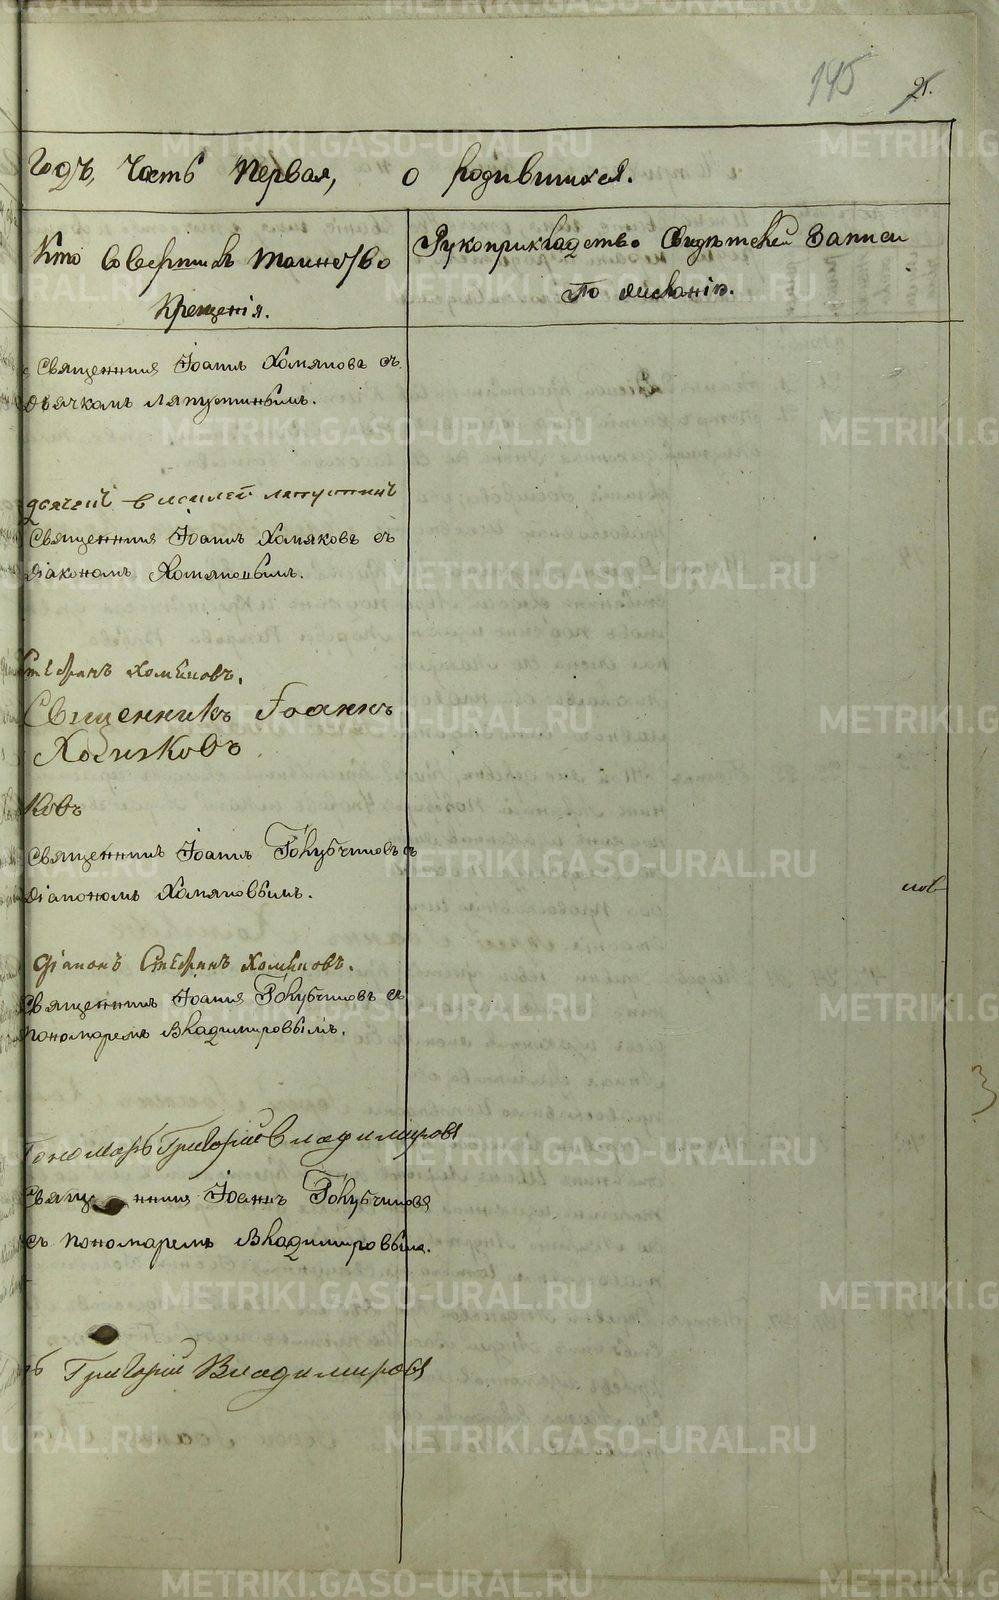 145
Годъ, Часть Первая, о родившихся.
Кто Совершилъ таинство
Крещенія.
Рукоприкладство Свидѣтелей Записи
По желанію.
Священникъ Іоаннъ Хомяковъ съ
дьячкомъ Лапустинымъ.
дьячекъ Василей Лапустинъ
Священникъ Іоаннъ Хомяковъ съ
діакономъ Хомяковымъ.
Стефанъ Хомяковъ.
Священникъ Іоаннъ
Хомяковъ
ковъ
Священникъ Іоаннъ Голубчиковъ съ
діакономъ Хомяковымъ.
діаконъ Стефанъ Хомяковъ.
Священникъ Іоаннъ Голубчиковъ съ
пономаремъ Владимировымъ.
Пономарь Григорій Владимировъ
Священникъ Іоаннъ Голубчиковъ
съ пономаремъ Владимировымъ.
ь Григорій Владимировъ
METRIKI.GASO-URAL.RU